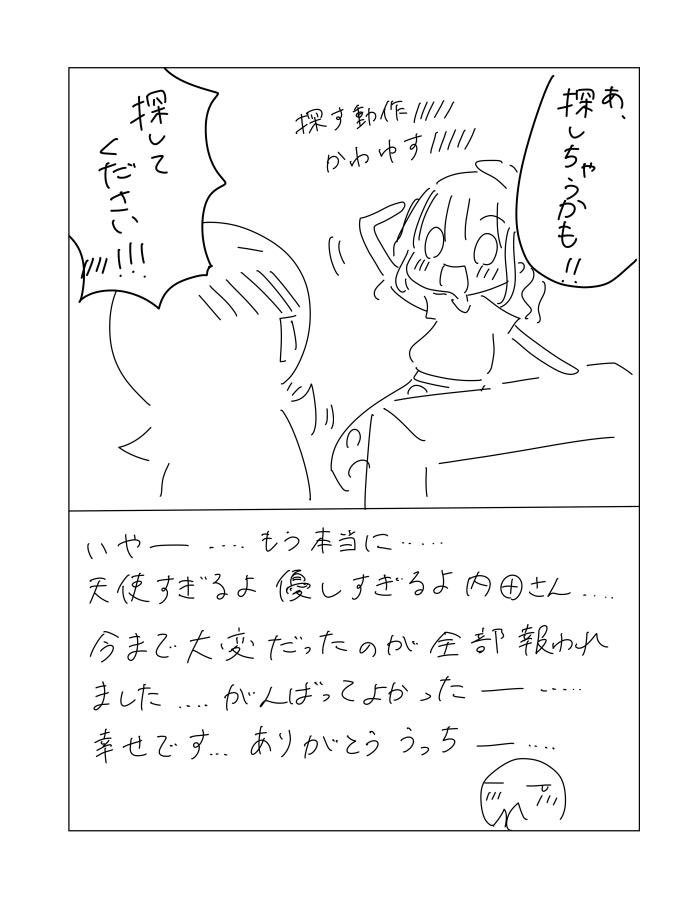 あ、
探しちゃうかも!!
探す動作/////
かわゆす/////
探して
ください
////!!!
いやー ‥‥もう本当に‥‥‥
天使すぎるよ 優しすぎるよ 内田さん‥‥
今まで大変だったのが全部報われ
ました‥‥がんばってよかったー‥‥‥
幸せです‥‥ありがとううっちー‥‥